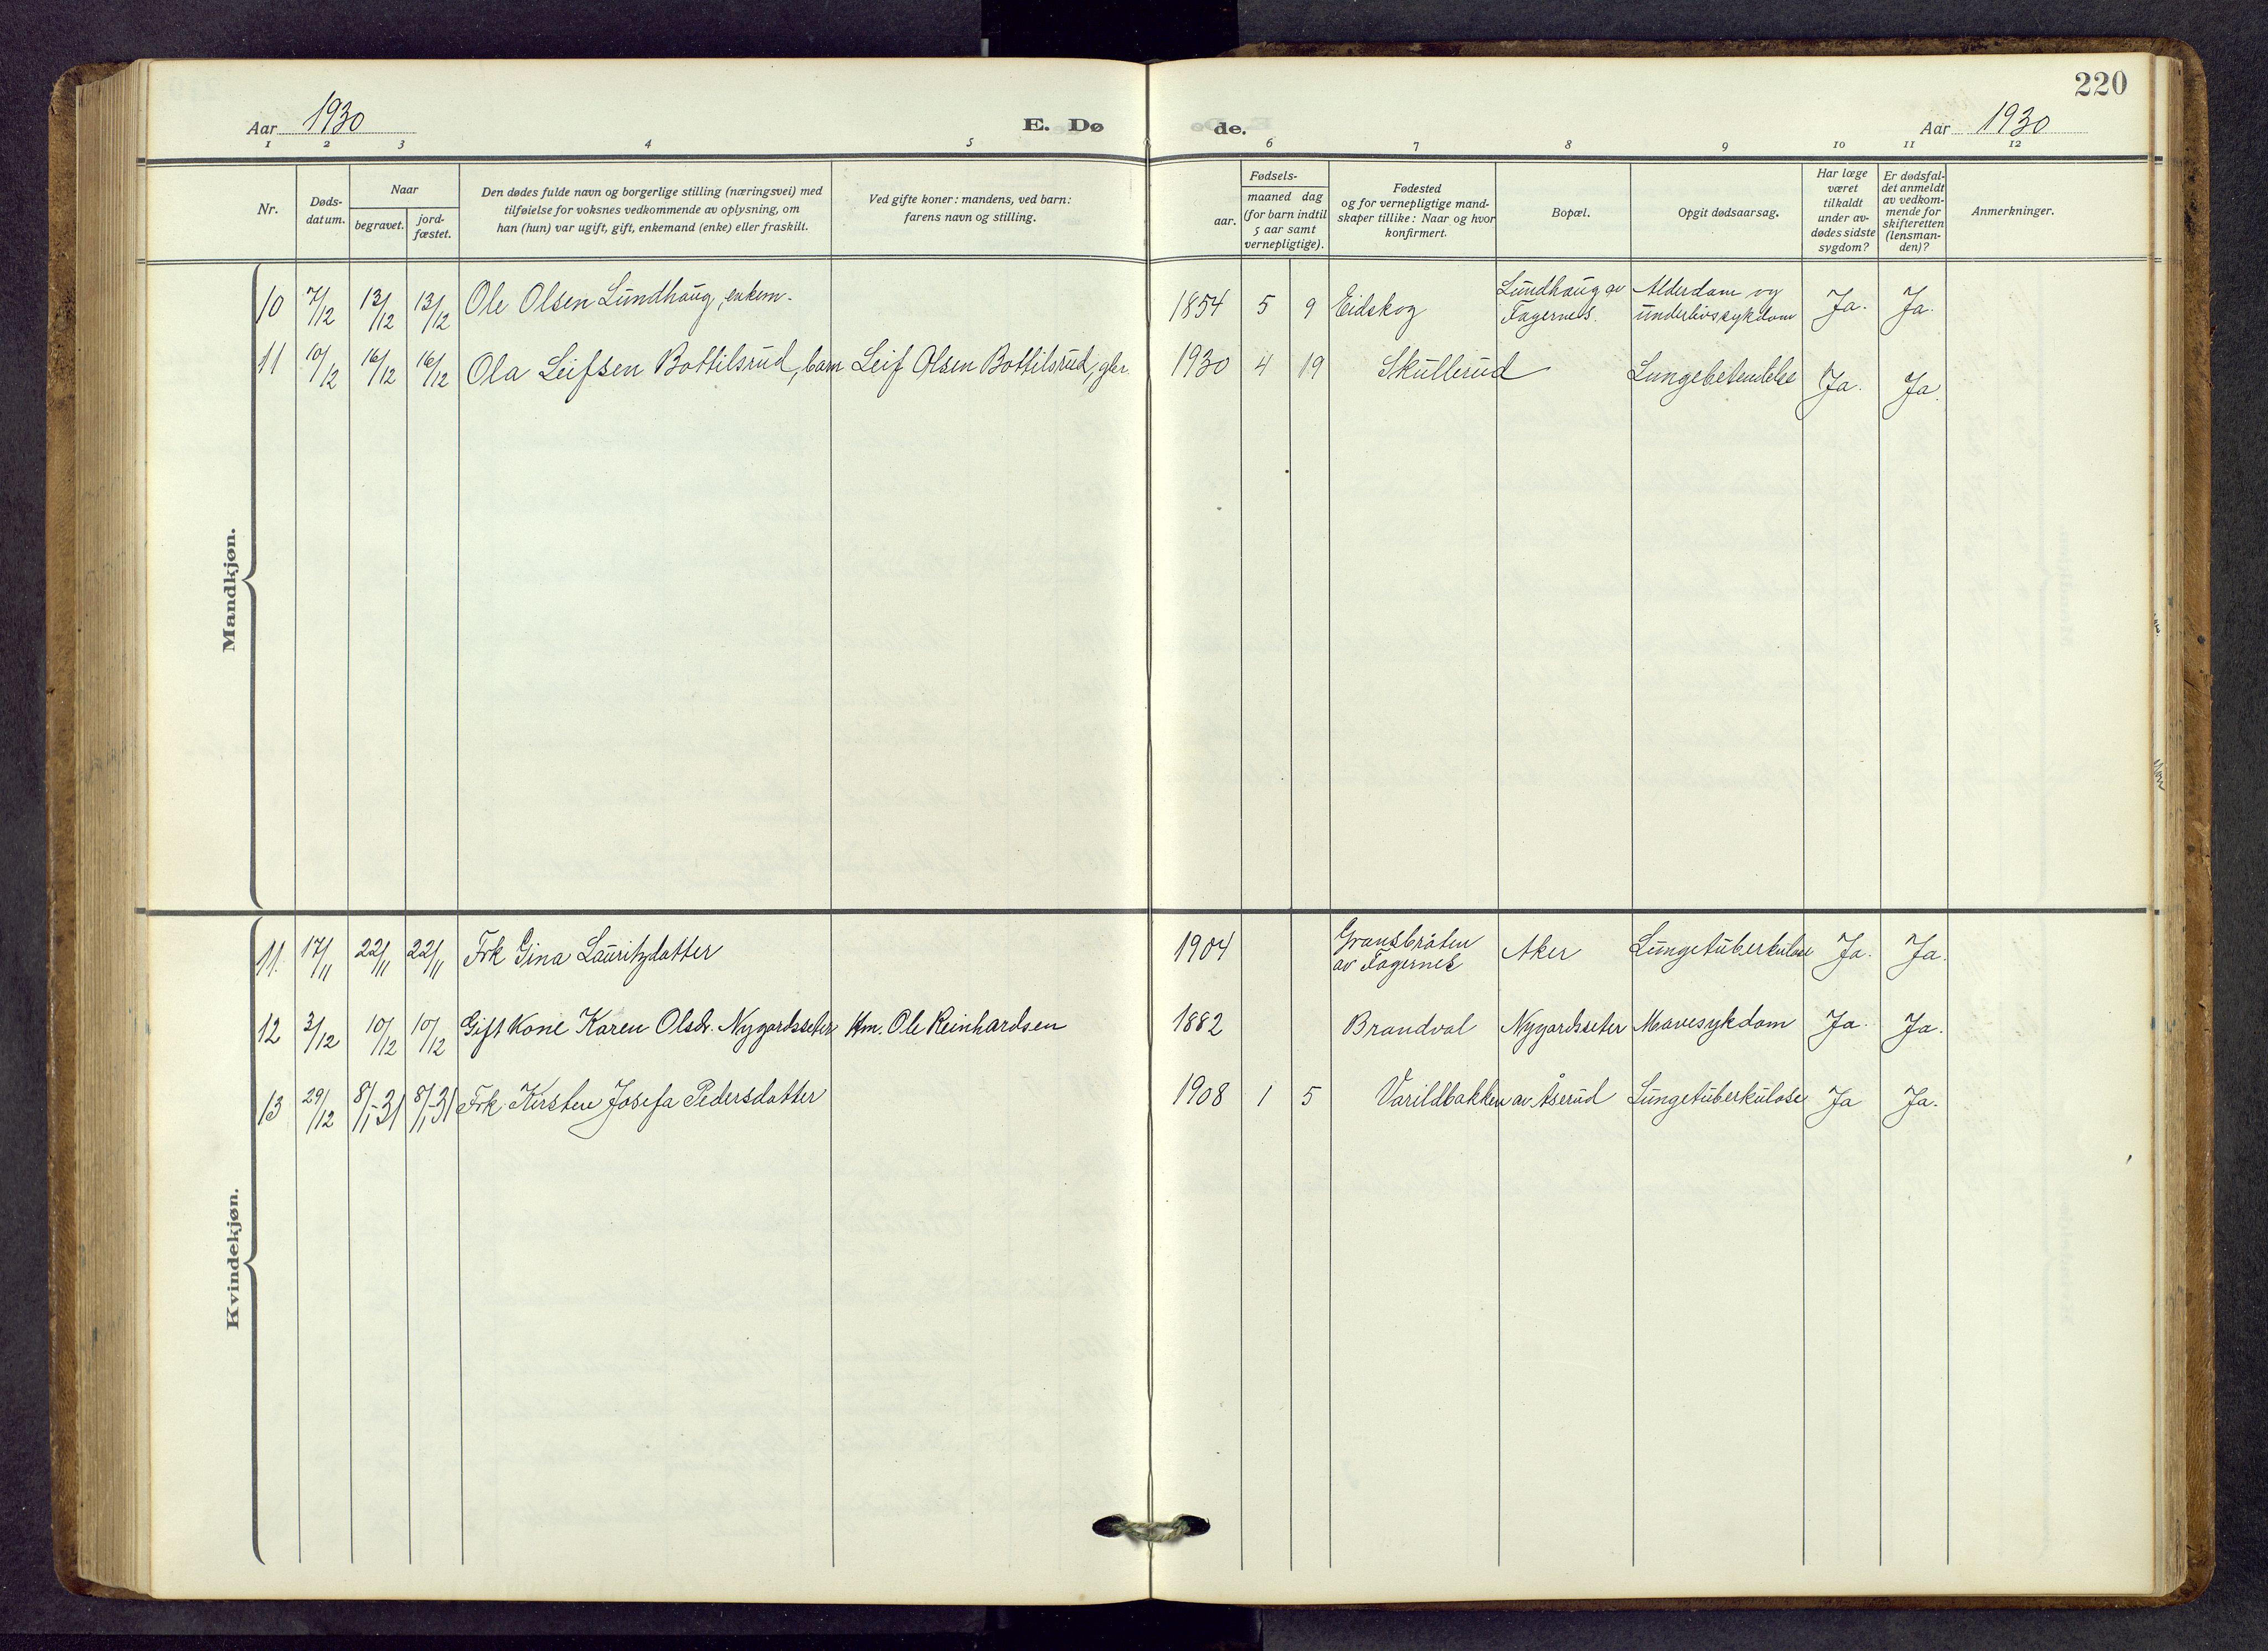 220
Aar 1930
E. Dø
de.
Aar 1930
1 2 3 4 5 6 7 8 9 10 11 12
Nr.
Døds-
datum.
Naar
begravet.
jord-
fæstet.
Den dødes fulde navn og borgerlige stilling (næringsvei) med
tilføielse for voksnes vedkommende av oplysning, om
han (hun) var ugift, gift, enkemand (enke) eller fraskilt.
Ved gifte koner: mandens, ved barn:
farens navn og stilling.
Fødsels-
aar.
maaned dag
(for barn indtil
5 aar samt
vernepligtige).
Fødested
og for vernepligtige mand-
skaper tillike: Naar og hvor
konfirmert.
Bopæl.
Opgit dødsaarsag.
Har læge
været
tilkaldt
under av-
dødes sidste
sygdom?
Er dødsfal-
det anmeldt
av vedkom-
mende for
skifteretten
(lensman-
den)?
Anmerkninger.
Mandkjøn.
10 7/12 13/12 13/12 Ole Olsen Lundhaug, enkem. 1854 5 9 Eidskog Lundhaug av Fagernes. Alderdom og underlivssykdom Ja. Ja.
11 10/12 16/12 16/12 Ola Leifsen Bottilsrud, barn Leif Olsen Bottilsrud, gbr. 1930 4 19 Skullerud Lungebetendelse Ja. Ja.
Kvindekjøn.
11. 17/11 22/11 22/11 Frk Gina Lauritzdatter 1904 Gransbråten av Fagernes Aker Lungetuberkulose Ja. Ja.
12 3/12 10/12 10/12 Gift Kone Karen Olsdr. Nygardsseter Km. Ole Reinhardsen 1882 Brandval Nygardsseter Mavesykdom Ja. Ja.
13 29/12 8/1-31 8/1-31 Frk. Kirsten Josefa Pedersdatter 1908 1 5 Varildbakken av Åserud Lungetuberkulose Ja Ja.